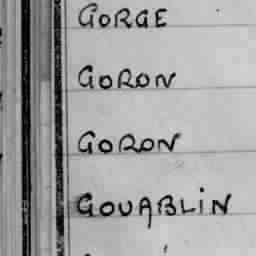 GORGE
GORON
GORON
GOUABLiN